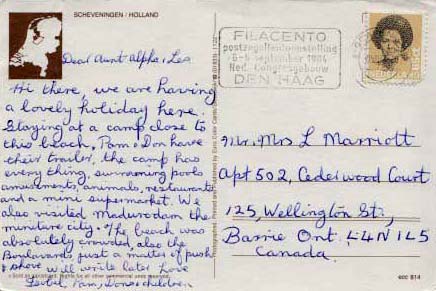 SCHEVENINGEN / HOLLAND
Dear Aunt Alpha & Les
Hi there, we are having
a lovely holiday here.
Staying at a camp close to
this beach, Pam & Don have
their trailer, the camp has
every thing, swimming pools
amusements, animals, restaurants
and a mini supermarket. We
also visited Madurodam the
minuture city. The beach was
absolutely crowded, also the
Boulavards just a matter of push
& shove will write later Love
Pam, Don & children
FILACENTO
postzegeltentoonstelling
5-9 september 1984
Ned. Congresgebouw
DEN HAAG
Mr. Mrs L Marriott
Apt 502, Cederwood Court
125, Wellington St,
Barrie Ont. L4N 1L5
Canada.
ecc 814